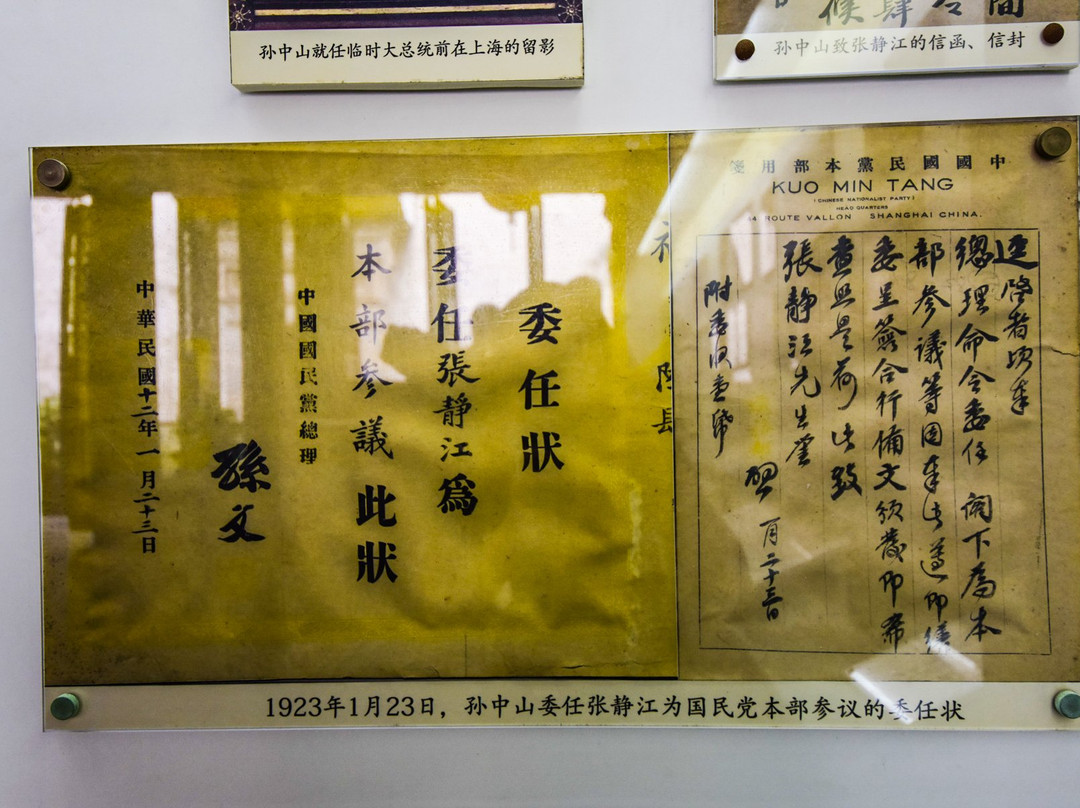 孙中山就任临时大总统前在上海的留影
孙中山致张静江的信函、信封
委任狀
委任張靜江爲
本部參議此狀
中國國民黨總理
孫文
中華民國十二年一月二十三日
箋用部本黨民國國中
KUO MIN TANG
(CHINESE NATIONALIST PARTY)
HEAD QUARTERS
44 ROUTE VALLON SHANGHAI CHINA.
逕啓者頃奉
總理命令委任 閣下爲本
部參議等因奉此遵即繕
委呈簽合行備文頒發即希
查照是荷此致
張靜江先生鑒
附委狀壹帋
一月二十三日
1923年1月23日，孙中山委任张静江为国民党本部参议的委任状